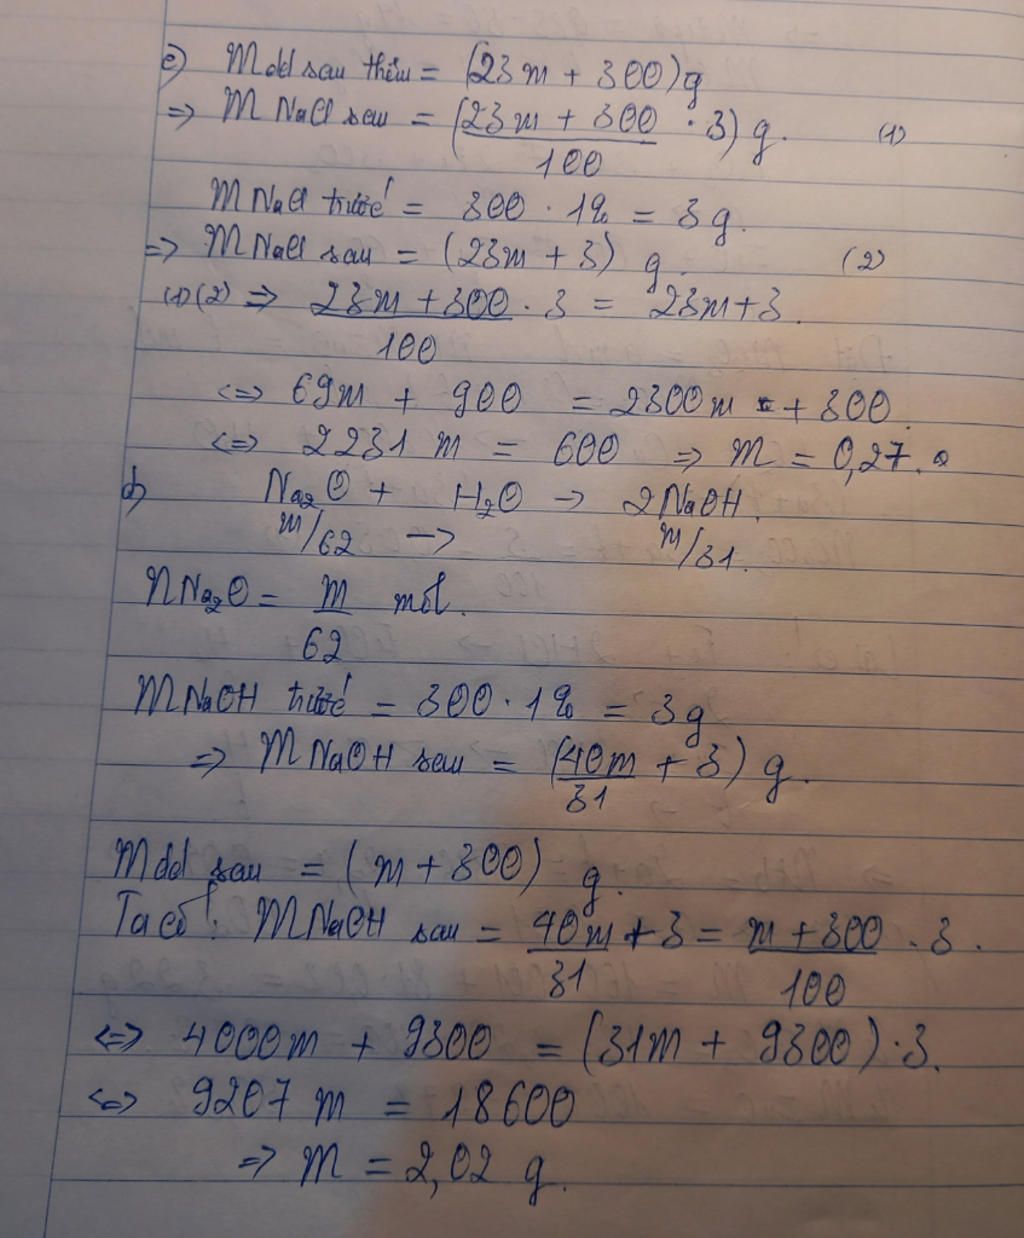 c) mdd sau thêm = (23m + 300)g
=> m NaCl sau = (23m + 300 / 100 . 3) g. (1)
m NaCl trước = 300 . 1% = 3g.
=> m NaCl sau = (23m + 3) g. (2)
(1)(2) => 23m + 300 / 100 . 3 = 23m + 3.
<=> 69m + 900 = 2300m + 300.
<=> 2231 m = 600 => m = 0,27.
d) Na2O + H2O -> 2NaOH.
m/62 -> m/31.
nNa2O = m / 62 mol.
mNaOH trước = 300 . 1% = 3g
=> m NaOH sau = (40m / 31 + 3) g.
mdd sau = (m + 300) g.
Ta có: mNaOH sau = 40m / 31 + 3 = m + 300 / 100 . 3.
<=> 4000m + 9300 = (31m + 9300).3.
<=> 9207 m = 18600
=> m = 2,02 g.